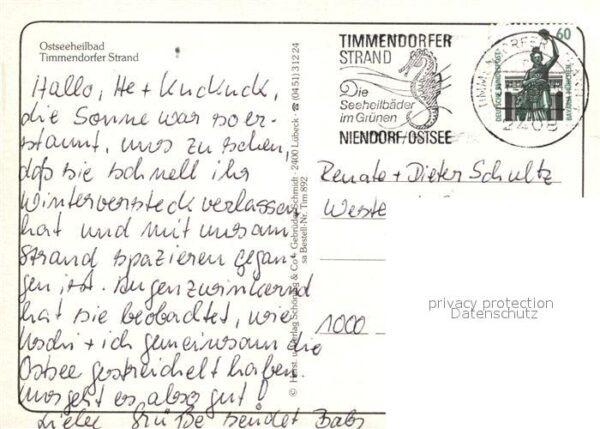 Ostseeheilbad
Timmendorfer Strand
Hallo, He + Kuckuck,
die Sonne war so er-
staunt, uns zu sehen,
daß sie schnell ihr
Winterversteck verlassen
hat und mit uns am
Strand spazieren gegan-
gen ist. Augenzwinkernd
hat sie beobachtet, wie
+ ich gemeinsam die
Ostsee gestreichelt haben.
Uns geht es also gut!
Liebe Grüße sendet Babs
© Horst. u. Verlag Schöning & Co + Gebrüder Schmidt · 2400 Lübeck · ☎ (04 51) 3 12 24
sa Bestell-Nr. Tim 892
TIMMENDORFER
STRAND
Die
Seeheilbäder
im Grünen
NIENDORF/OSTSEE
2408
60
DEUTSCHE BUNDESPOST
BAVARIA MÜNCHEN
Renate + Dieter Schultz
Weste
1000
privacy protection
Datenschutz